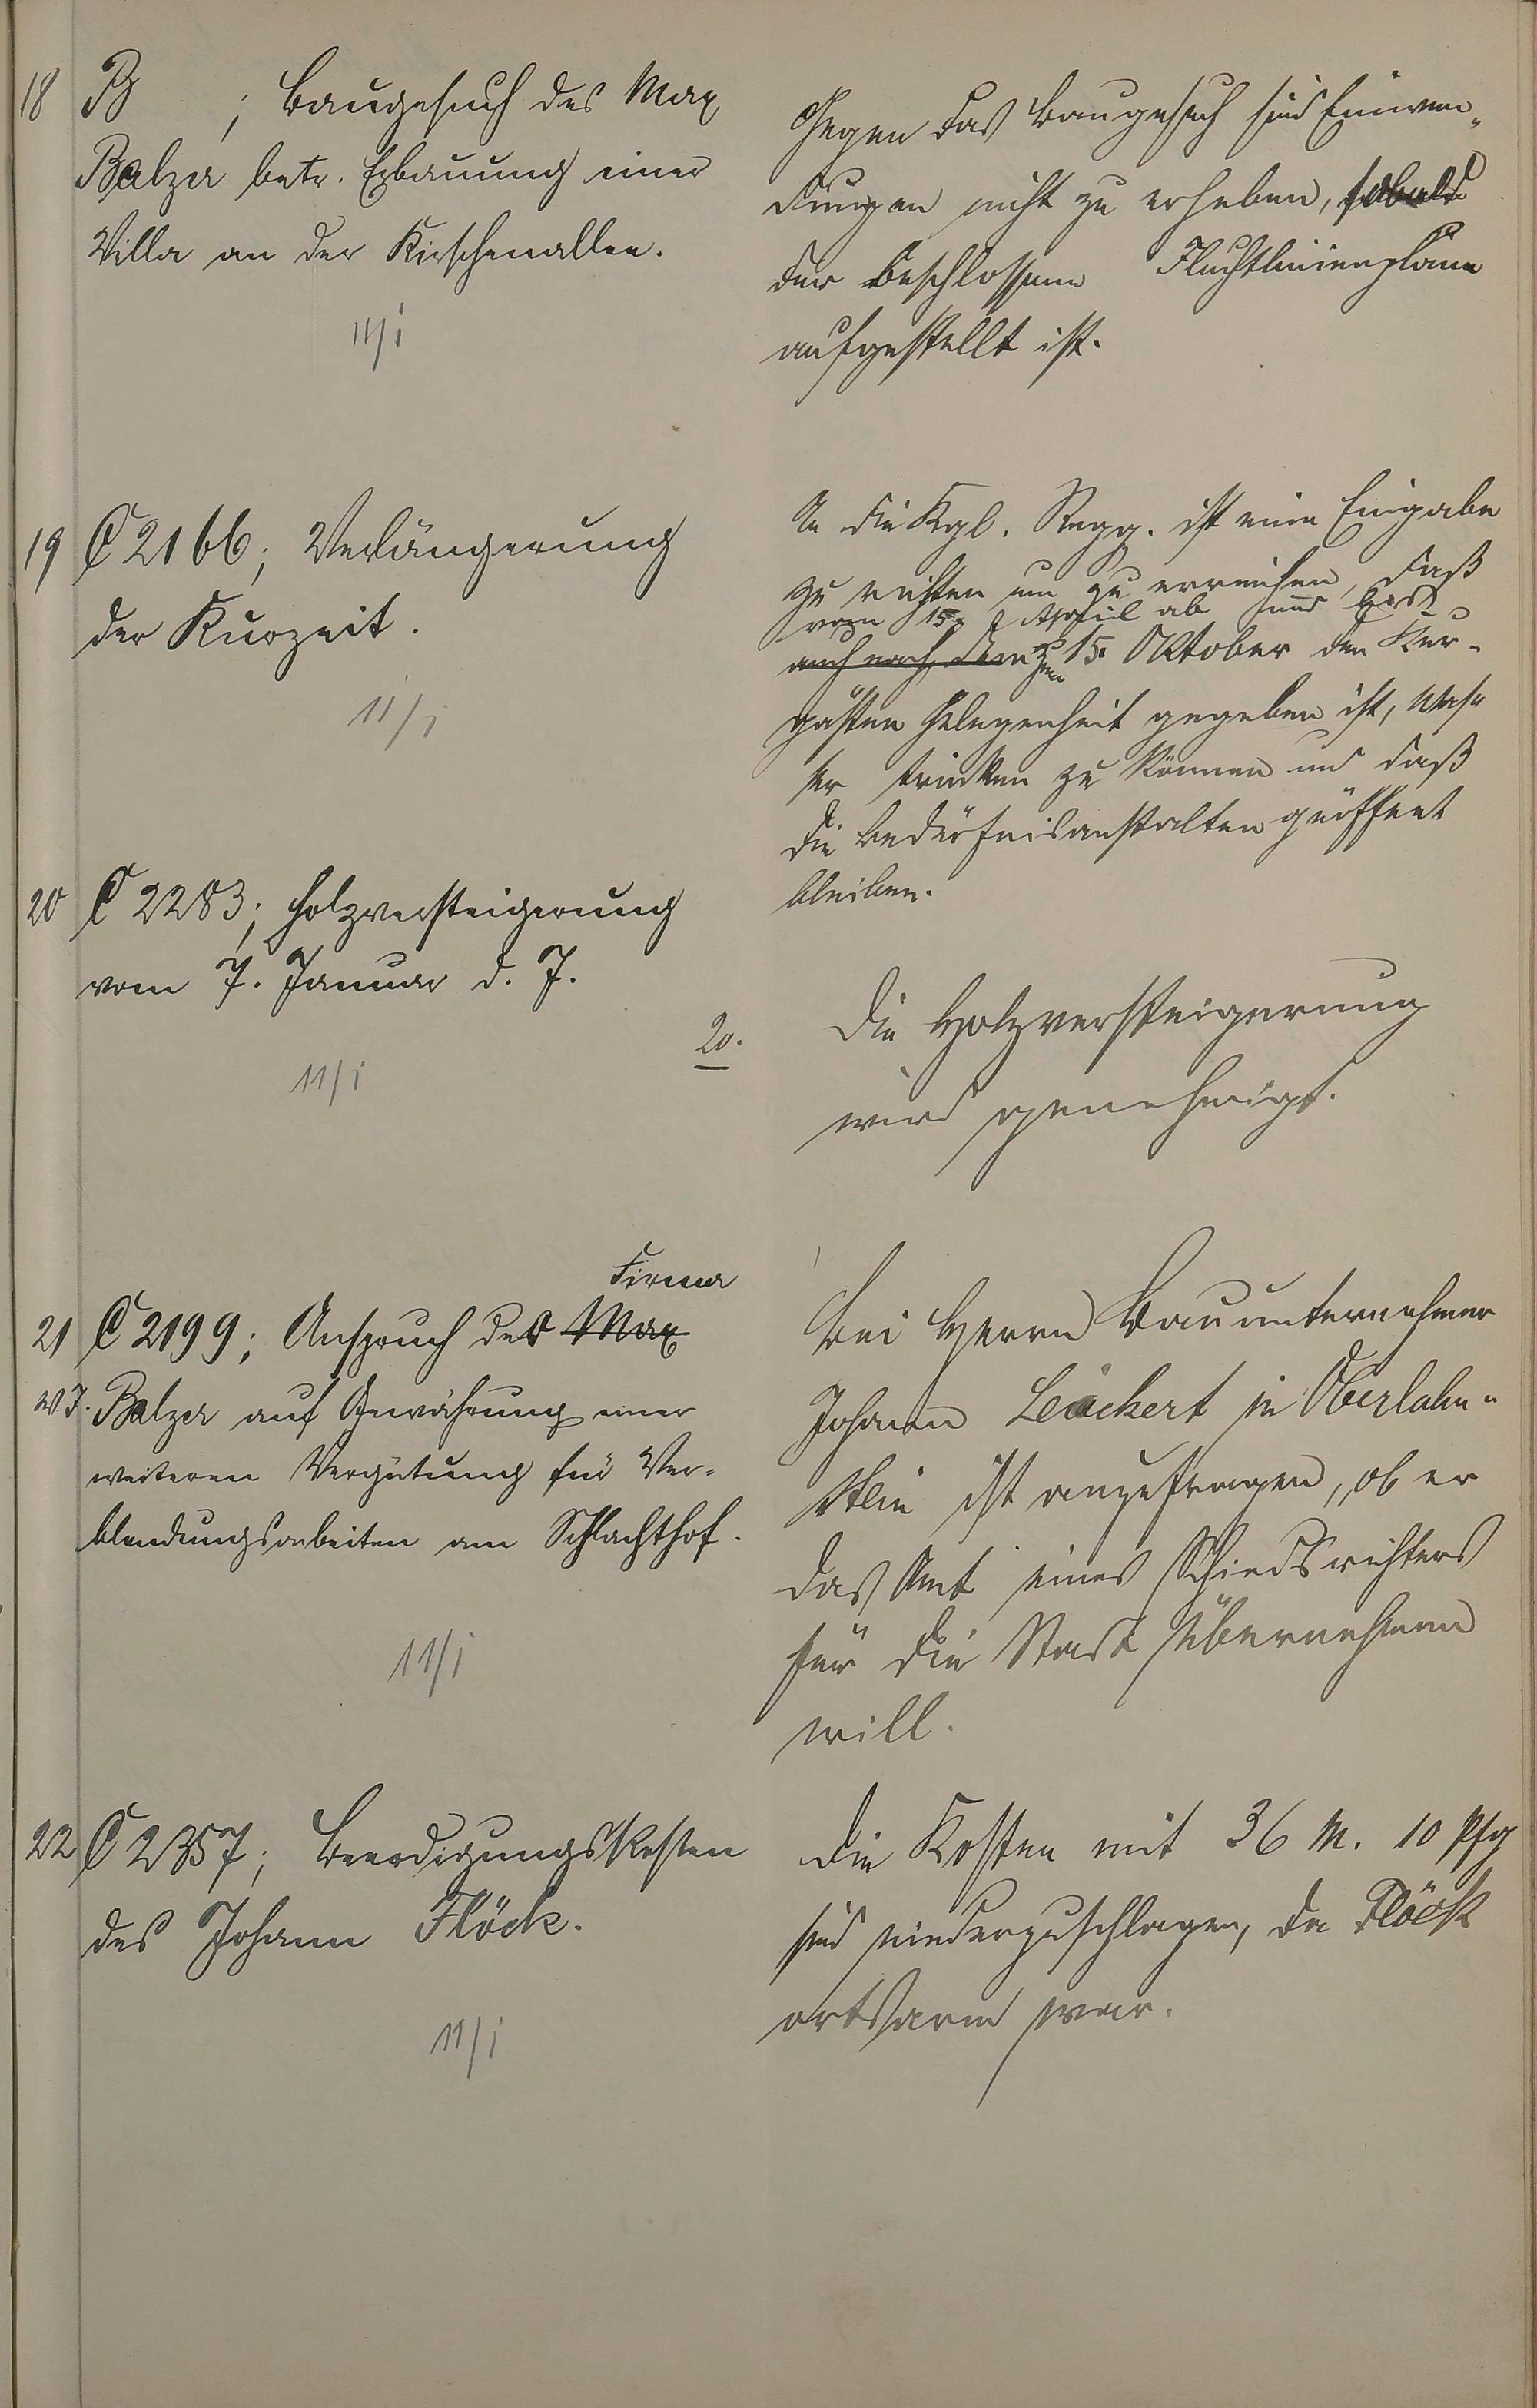 18 B ; Baugesuch des Max
Balzer betr. Erbauung einer
Villa an der Kirschenallee.
11/1
Gegen das Baugesuch sind Einwen-
dungen nicht zu erheben, sobald
der beschlossene Fluchtlinienplan
aufgestellt ist.
19 C 2166; Verlängerung
der Kurzeit.
11/1
An die Kgl. Regg. ist eine Eingabe
zu richten um zu erreichen, daß
vom 15. April ab und bis
auch nach dem zum 15. Oktober den Kur-
gästen Gelegenheit gegeben ist, Was-
ser trinken zu können und daß
die Bedürfnisanstalten geöffnet
bleiben.
20 C 2283; Holzversteigerung
vom 7. Januar d. J.
11/1
20. Die Holzversteigerung
wird genehmigt.
Firma
21 C 2199; Anspruch der Max
W. J. Balzer auf Gewährung einer
weiteren Vergütung für Ver-
blendungsarbeiten am Schlachthof.
11/1
Bei Herrn Bauunternehmer
Johann Leickert in Oberlahn-
stein ist anzufragen, ob er
das Amt eines Schiedsrichters
für die Stadt übernehmen
will.
22 C 2357; Beerdigungskosten
des Johann Flöck.
11/1
Die Kosten mit 36 M. 10 Pfg
sind niederzuschlagen, da Flöck
ortsarm war.